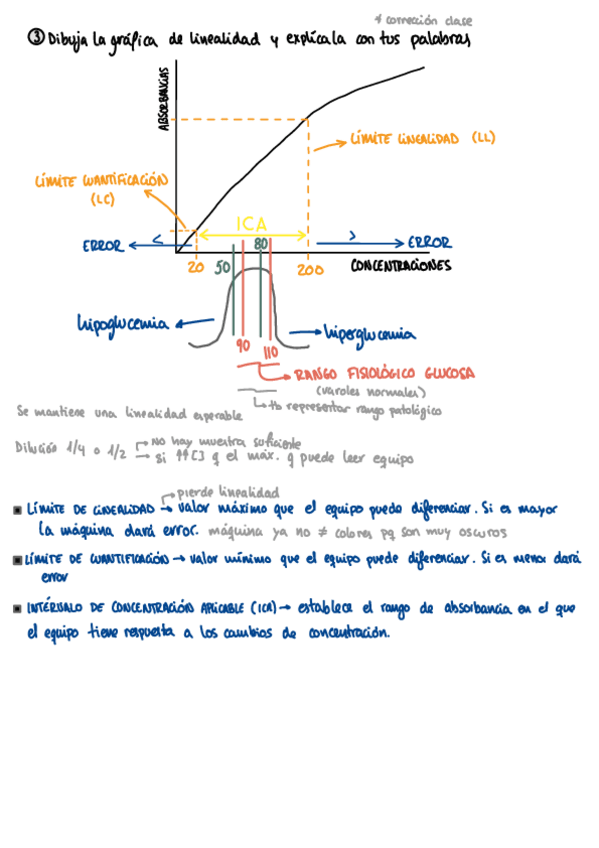 + corrección clase
③ Dibuja la gráfica de linealidad y explícala con tus palabras
ABSORBANCIAS
LÍMITE LINEALIDAD (LL)
LÍMITE CUANTIFICACIÓN
(LC)
ICA
ERROR
<
80
>
ERROR
20
50
200
CONCENTRACIONES
hipoglucemia
hiperglucemia
90
110
RANGO FISIOLÓGICO GLUCOSA
(varoles normales)
tb representar rango patológico
Se mantiene una linealidad esperable
Dilución 1/4 o 1/2 → no hay muestra suficiente
→ si ↑↑[] q el máx. q puede leer equipo
→ pierde linealidad
▪ LÍMITE DE LINEALIDAD → valor máximo que el equipo puede diferenciar. Si es mayor
la máquina dará error. máquina ya no ≠ colores pq son muy oscuros
▪ LÍMITE DE CUANTIFICACIÓN → valor mínimo que el equipo puede diferenciar. Si es menor dará
error
▪ INTÉRVALO DE CONCENTRACIÓN APLICABLE (ICA) → establece el rango de absorbancia en el que
el equipo tiene respuesta a los cambios de concentración.